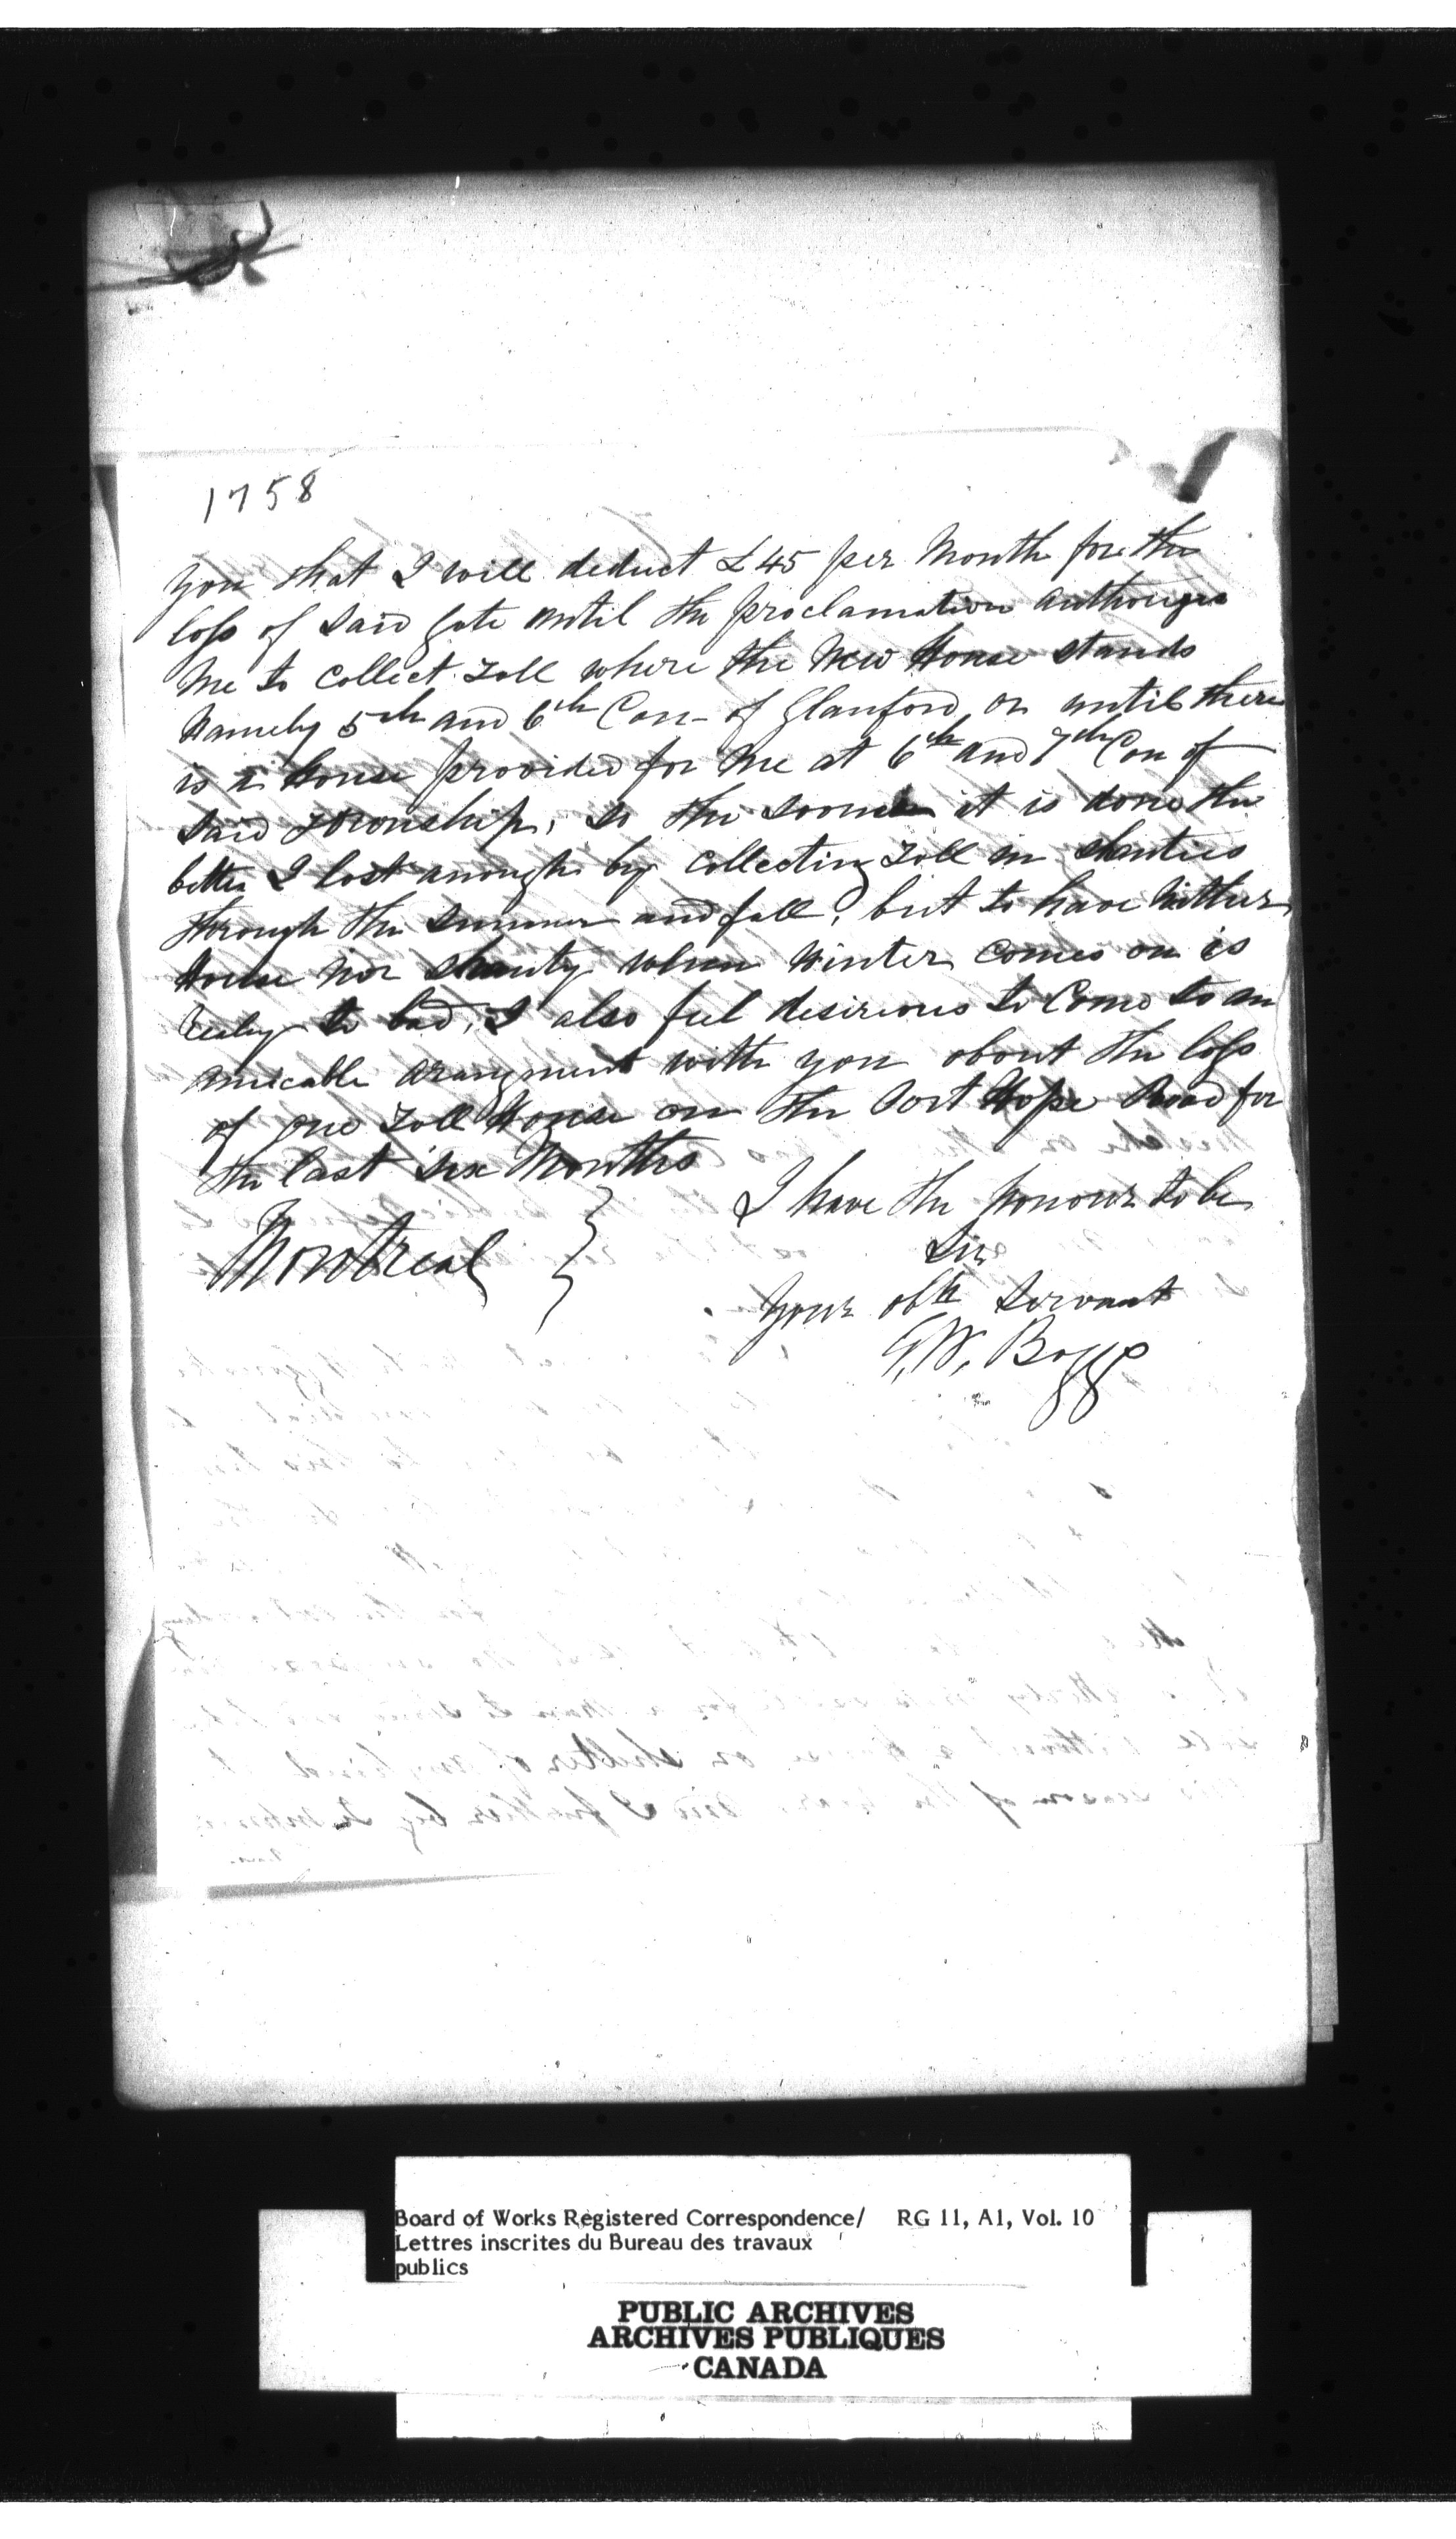 1758
you that I will deduct £45 per Month for the
loss of Said gate until the proclamation authorizes
Me to Collect Toll where the New House stands
Namely 5th and 6th Con- of Glanford, or until there
is a house provided for Me at 6th and 7th Con of
Said Township, so the sooner it is done the
better I lost anough by Collecting Toll in shanties
through the Summer and fall, but to have Nither
House Nor shanty when Winter Comes on is
realy to bad, I also feel desirious to Come to an
amicable arangment with you about the loss
of one Toll House on the Port Hope Road for
the last six Months
I have the honour to be
Sir
Montreal }
Your obt Servant
G.W. Boggs
Board of Works Registered Correspondence/ RG 11, A1, Vol. 10
Lettres inscrites du Bureau des travaux
publics
PUBLIC ARCHIVES
ARCHIVES PUBLIQUES
CANADA